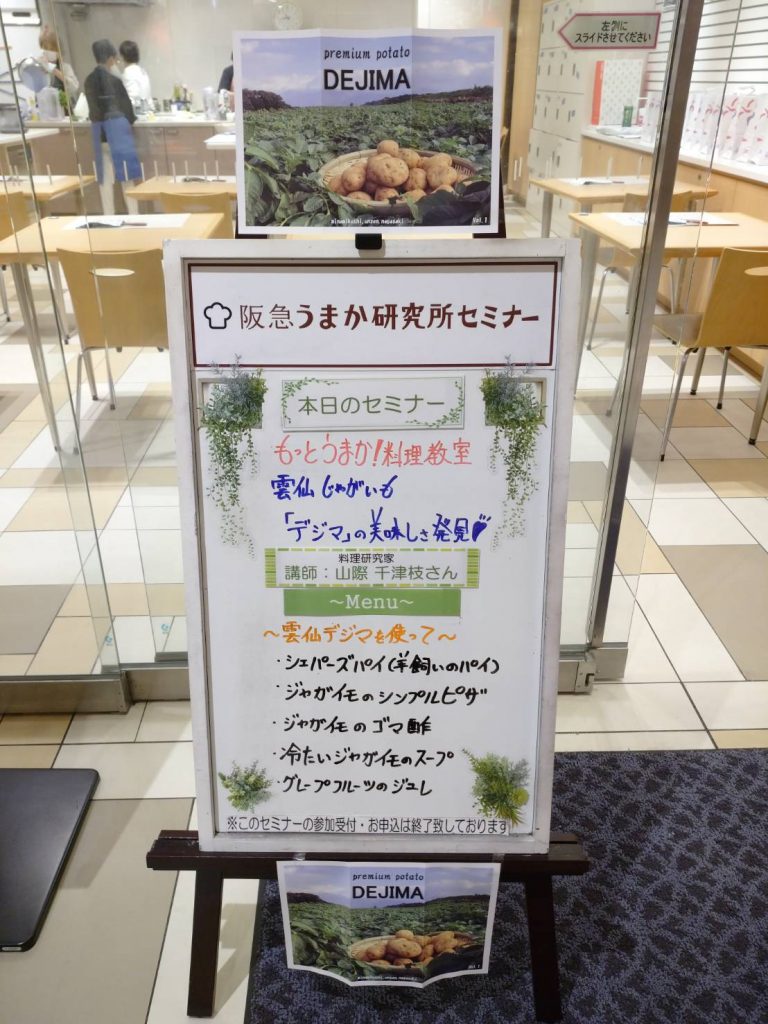 左側に
スライドさせてください
premium potato
DEJIMA
vol.1
阪急うまか研究所セミナー
本日のセミナー
もっとうまか!料理教室
雲仙じゃがいも
「デジマ」の美味しさ発見♥
料理研究家
講師：山際 千津枝さん
～Menu～
～雲仙デジマを使って～
・シェパーズパイ(羊飼いのパイ)
・ジャガイモのシンプルピザ
・ジャガイモのゴマ酢
・冷たいジャガイモのスープ
・グレープフルーツのジュレ
※このセミナーの参加受付・お申込は終了致しております
premium potato
DEJIMA